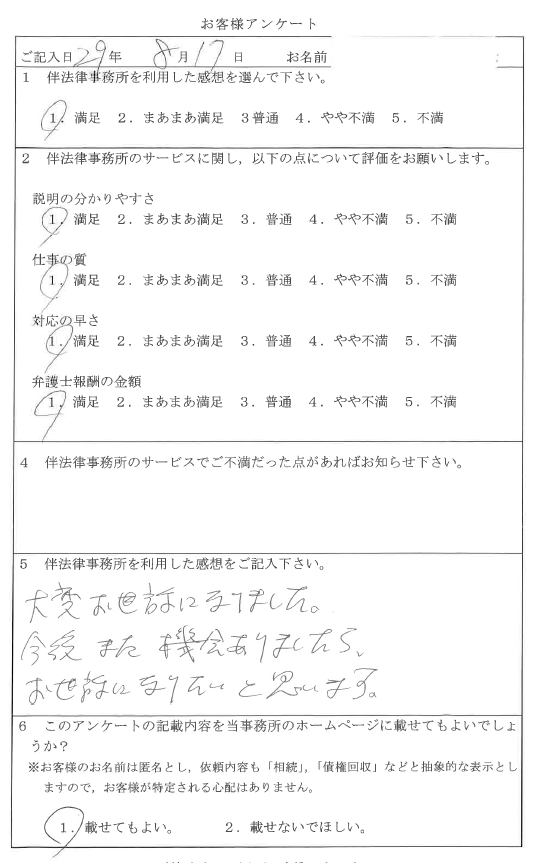 お客様アンケート
ご記入日 29年 8月 17日 お名前
1 伴法律事務所を利用した感想を選んで下さい。
1. 満足 2. まあまあ満足 3 普通 4. やや不満 5. 不満
2 伴法律事務所のサービスに関し,以下の点について評価をお願いします。
説明の分かりやすさ
1. 満足 2. まあまあ満足 3. 普通 4. やや不満 5. 不満
仕事の質
1. 満足 2. まあまあ満足 3. 普通 4. やや不満 5. 不満
対応の早さ
1. 満足 2. まあまあ満足 3. 普通 4. やや不満 5. 不満
弁護士報酬の金額
1. 満足 2. まあまあ満足 3. 普通 4. やや不満 5. 不満
4 伴法律事務所のサービスでご不満だった点があればお知らせ下さい。
5 伴法律事務所を利用した感想をご記入下さい。
大変お世話になりました。
今後また機会ありましたら、
お世話になりたいと思います。
6 このアンケートの記載内容を当事務所のホームページに載せてもよいでしょ
うか?
※お客様のお名前は匿名とし,依頼内容も「相続」,「債権回収」などと抽象的な表示とし
ますので,お客様が特定される心配はありません。
1. 載せてもよい。 2. 載せないでほしい。